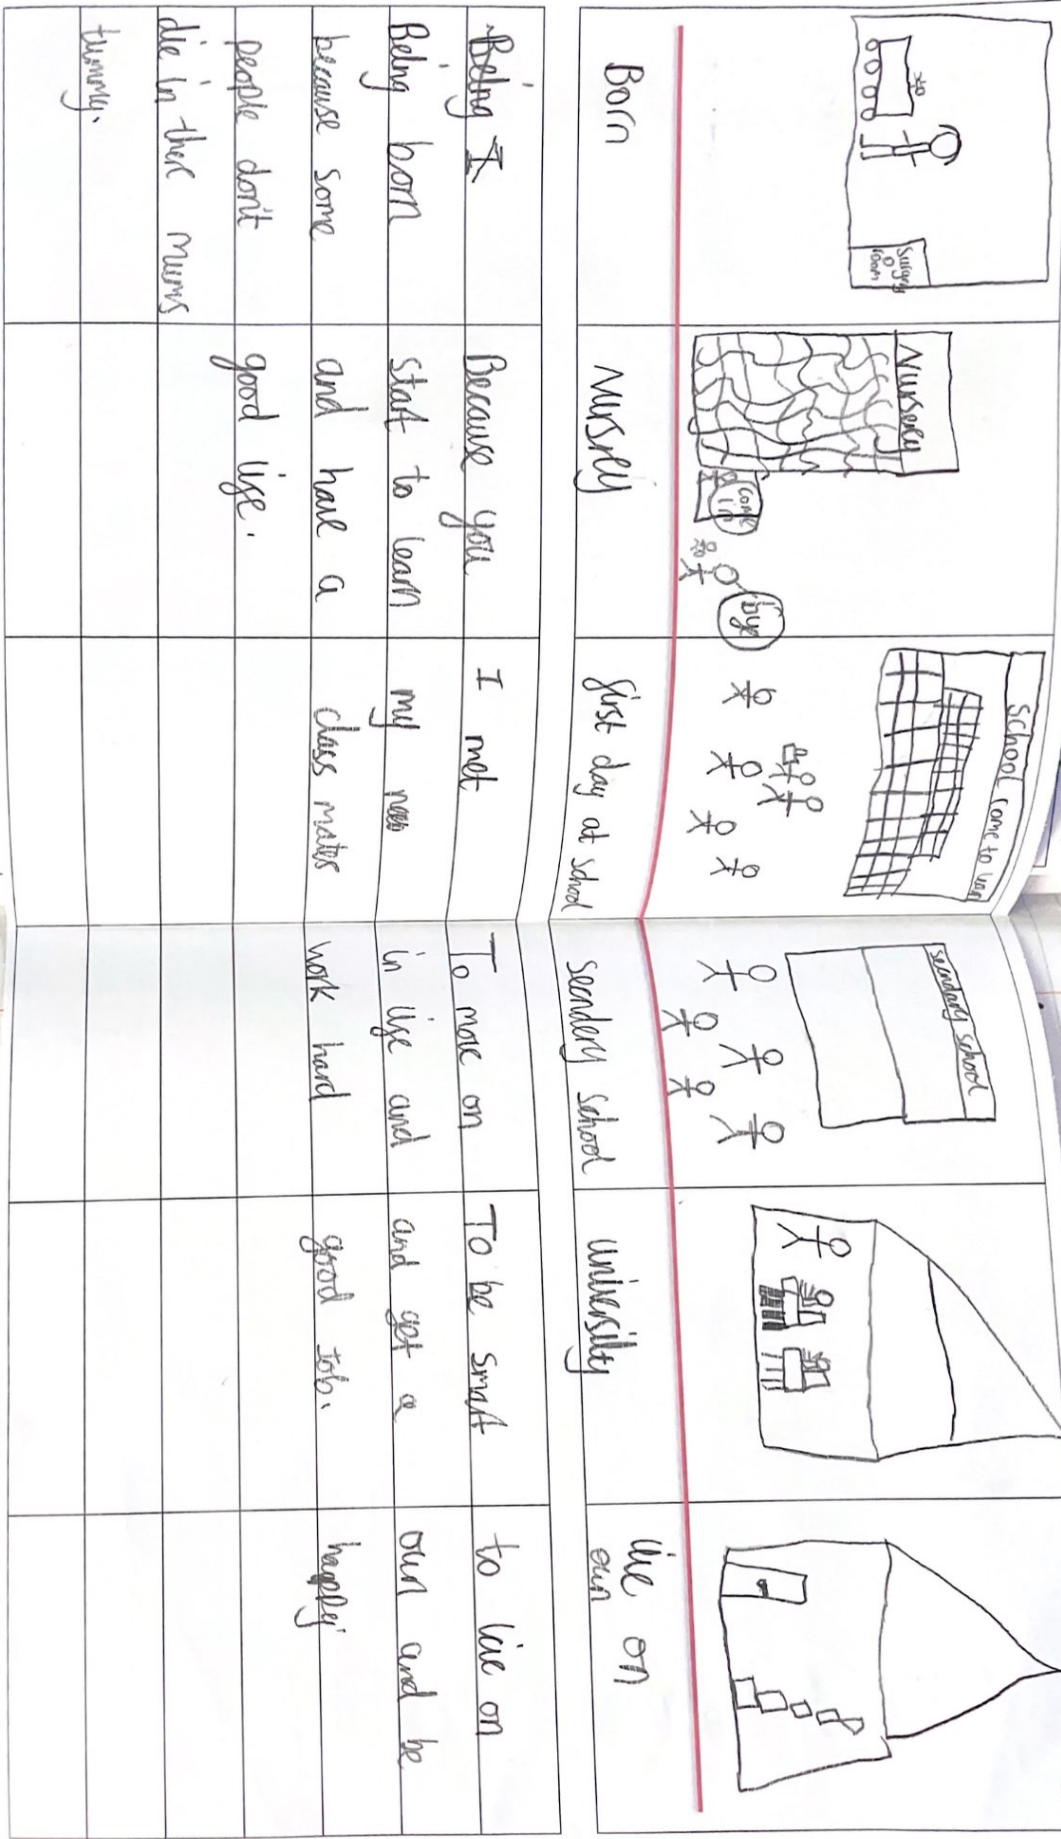 surgery
room
Nursery
come
in
bye
School come to van
secondary school
Born
Nursrey
first day at school
secondery school
universitty
live on
own
Being I
Being born
because some
people don't
die in there mums
tummy.
Because you
start to learn
and have a
good life.
I met
my new
class mates
To move on
in life and
work hard
To be smart
and get a
good Job.
to live on
own and be
happy